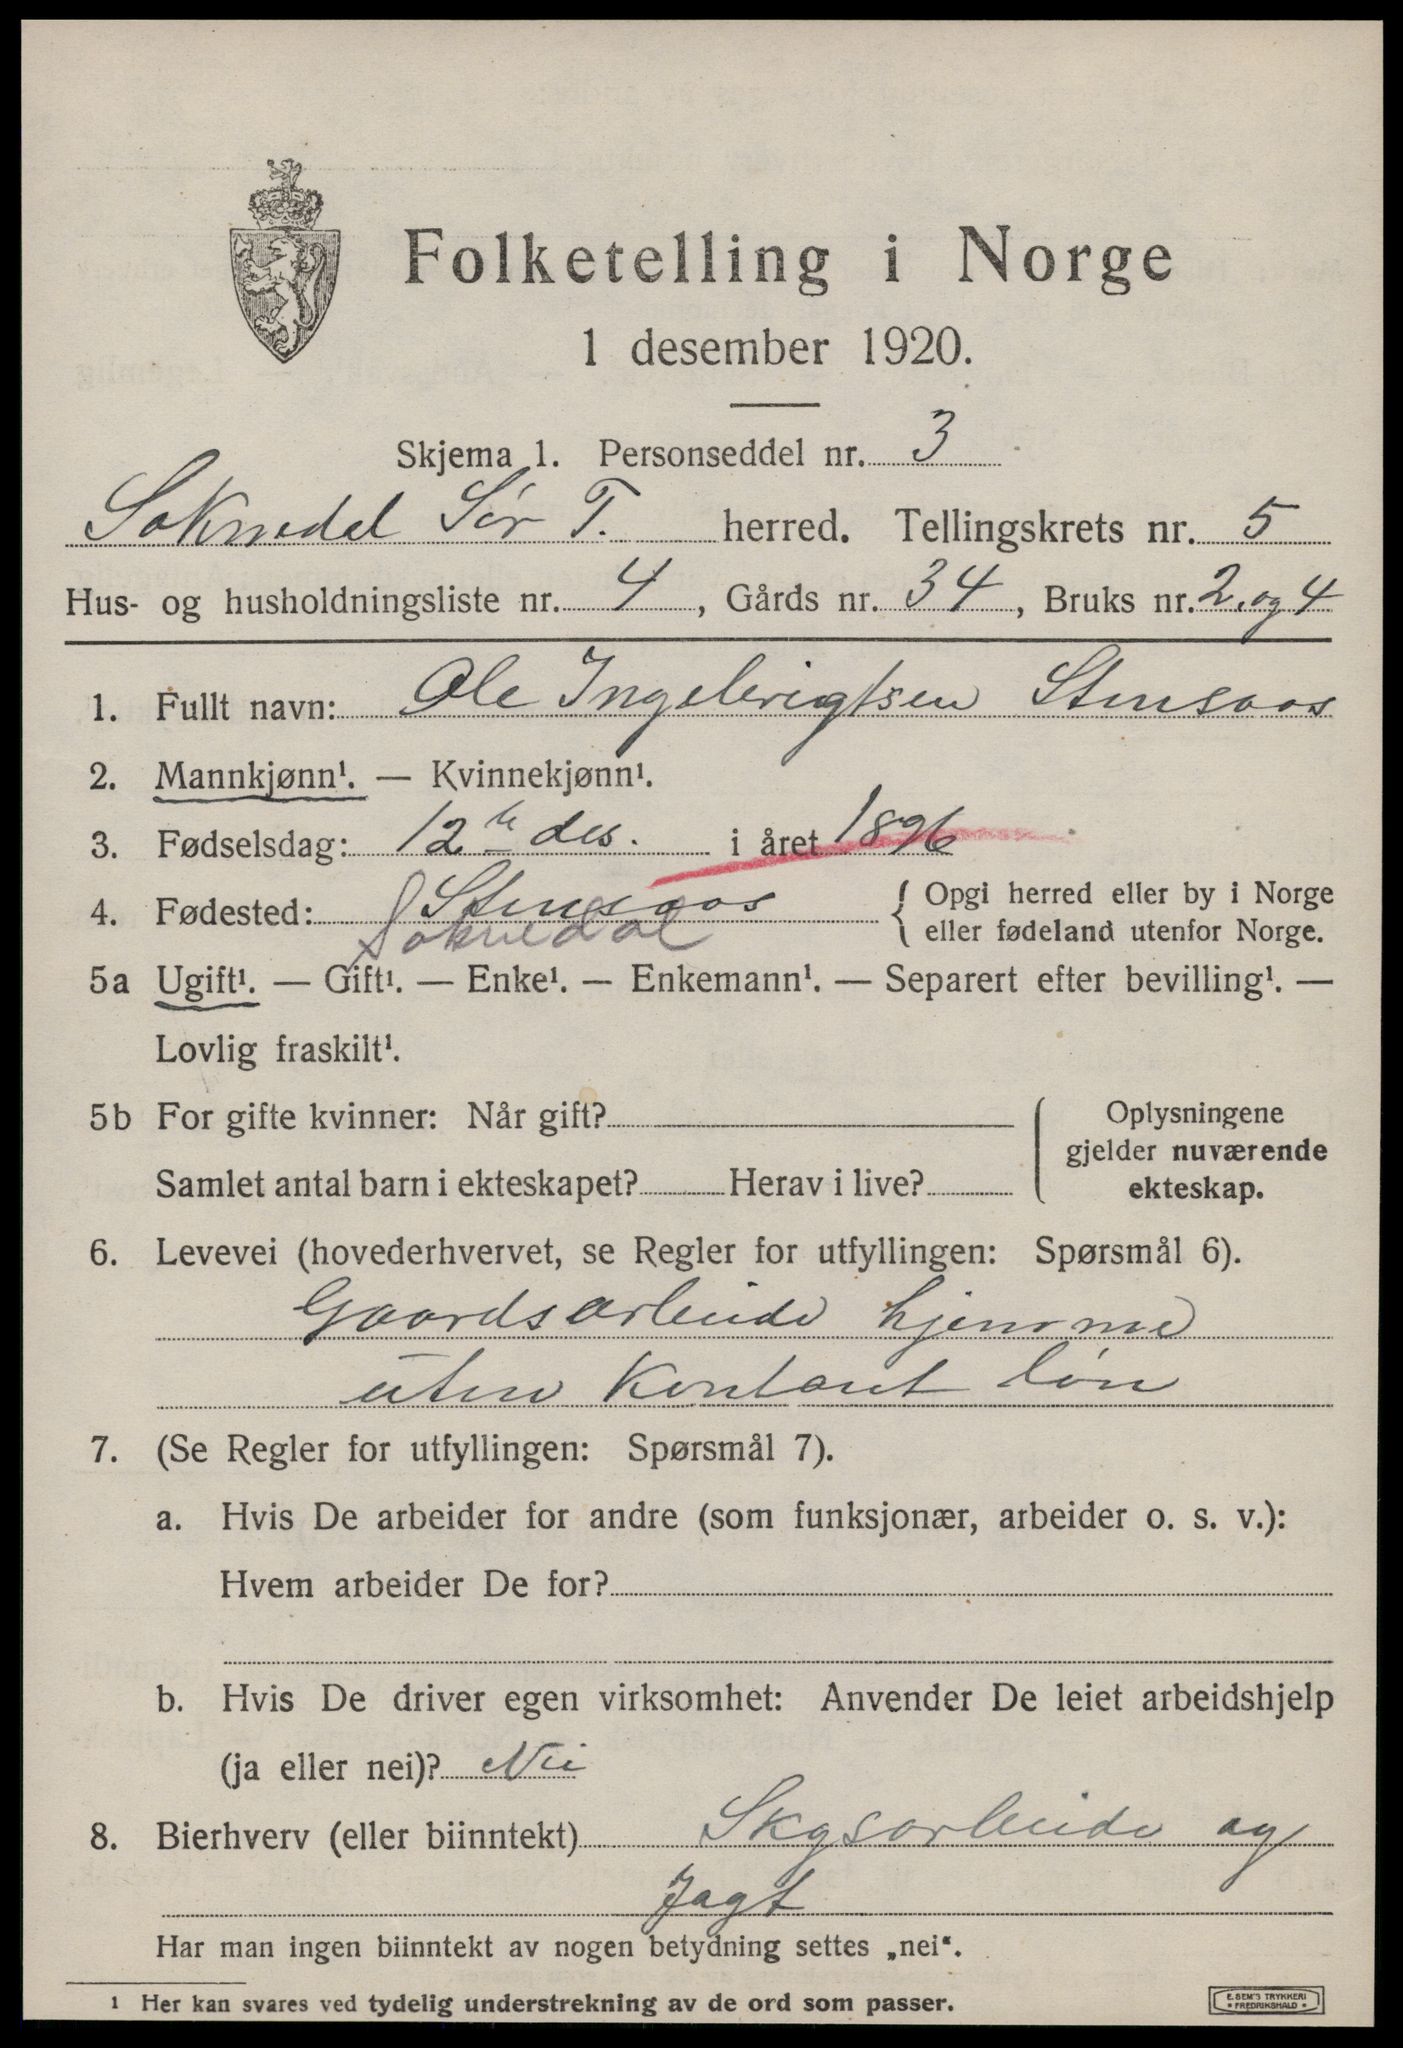 Folketelling i Norge
1 desember 1920.
Skjema 1. Personseddel nr. 3
Soknedal Sør T. herred. Tellingskrets nr. 5
Hus- og husholdningsliste nr. 4, Gårds nr. 34, Bruks nr. 2. og 4
1. Fullt navn: Ole Ingebrigtsen Stensaas
2. Mannkjønn¹. — Kvinnekjønn¹.
3. Fødselsdag: 12te des. i året 1896
4. Fødested: Stensaas { Opgi herred eller by i Norge
Soknedal eller fødeland utenfor Norge.
5a Ugift¹. — Gift¹. — Enke¹. — Enkemann¹. — Separert efter bevilling¹. —
Lovlig fraskilt¹.
5b For gifte kvinner: Når gift? Oplysningene
gjelder nuværende
Samlet antal barn i ekteskapet? Herav i live? ekteskap.
6. Levevei (hovederhvervet, se Regler for utfyllingen: Spørsmål 6).
Gaardsarbeide hjemme
uten kontant løn
7. (Se Regler for utfyllingen: Spørsmål 7).
a. Hvis De arbeider for andre (som funksjonær, arbeider o. s. v.):
Hvem arbeider De for?
b. Hvis De driver egen virksomhet: Anvender De leiet arbeidshjelp
(ja eller nei)? Nei
8. Bierhverv (eller biinntekt) Skogsarbeide og
Jagt
Har man ingen biinntekt av nogen betydning settes „nei“.
1 Her kan svares ved tydelig understrekning av de ord som passer.
E. SEM'S TRYKKERI
* FREDRIKSHALD *